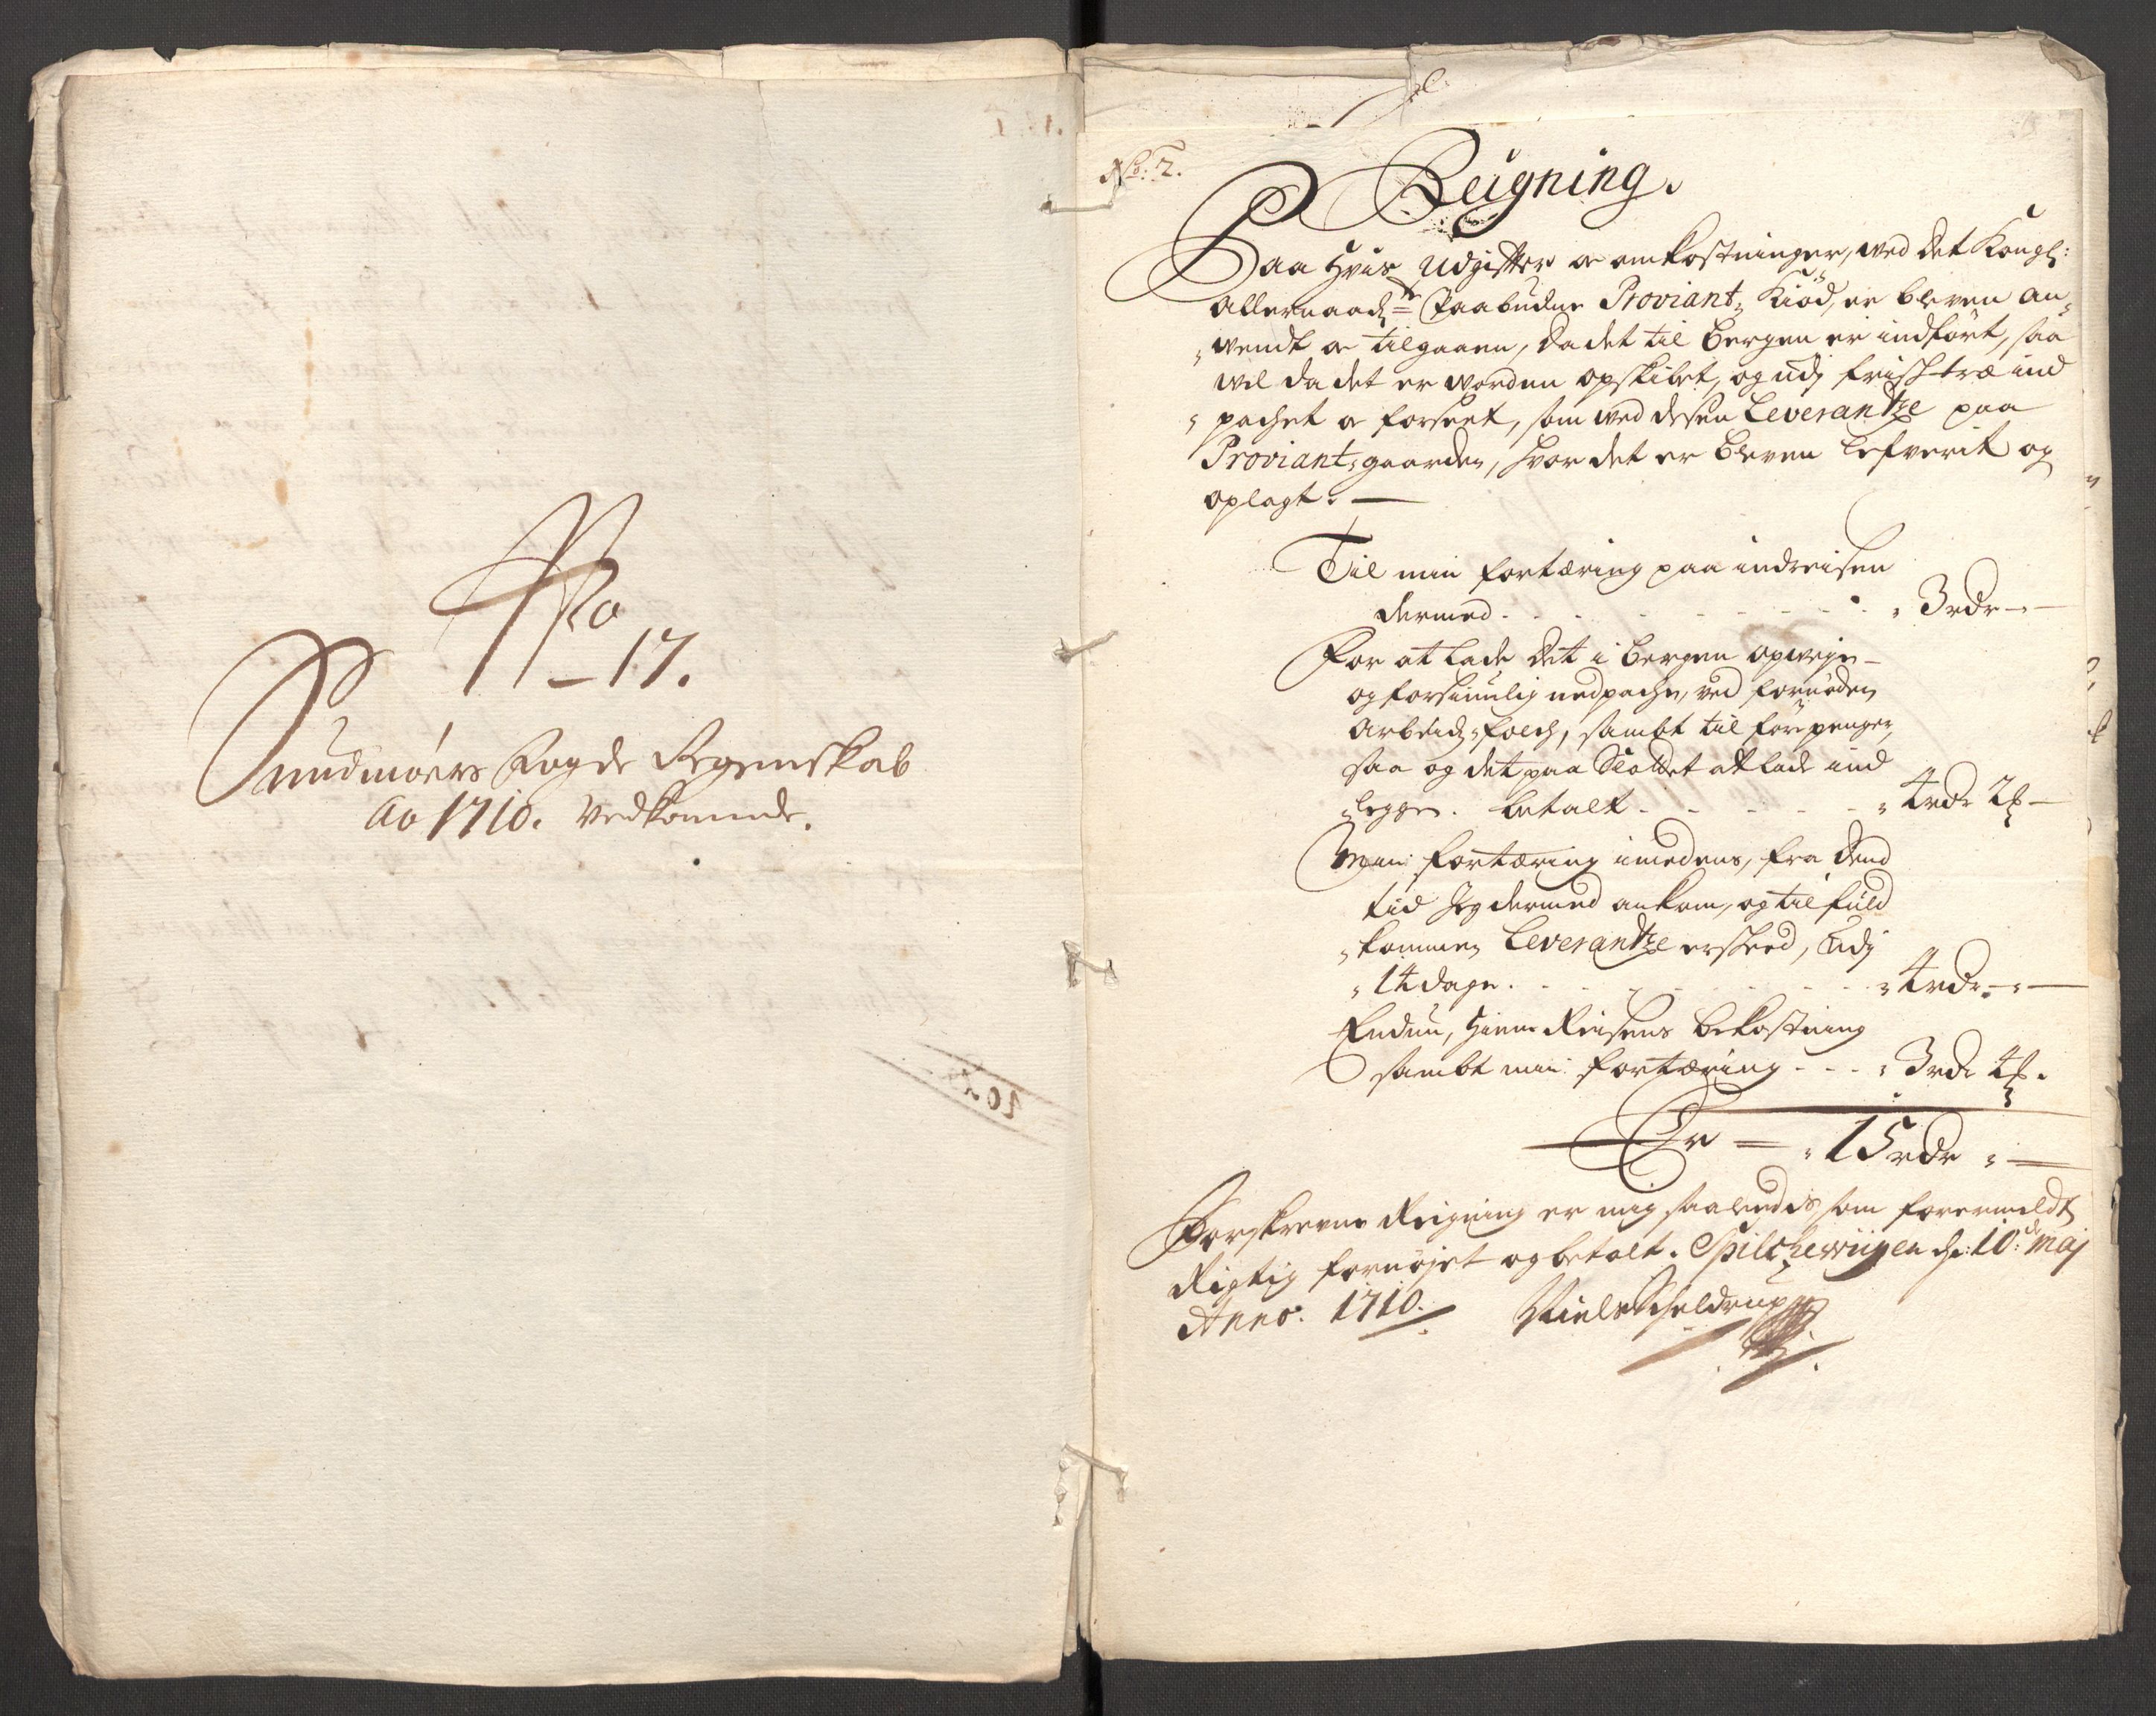 No
17.
Sundmørs Fogde Regenskab
ao 1710. Vedkommde.
No: 2.
Reigning.
Paa Hvis Udgifter oc omkostninger, wed det Kongl:
Allernaadste Paabudne Proviant, Kiød, er bleven an„
„wendt oc tilgaaen, da det til Bergen er indført, saa
wel da det er worden opskibet, og udj frisk træ ind
„pachet oc forseet, som wed desen Leverantze paa
Proviant, gaarden, hvor det er bleven lefverit og
oplagt.
Til min fortæring paa indreisen
dermed - - - 3 rdr -
For at lade det i Bergen opweje
og forsuunlig nedpache, ved fornøden
Arbeids-folch, sambt til førpenger,
saa og det paa Slottet at lade ind
legge. betalt - - - 4 rdr 2 ß -
Min fortæring imedens, fra dend
tid Jeg dermed ankom, og til fuld
„kommen Leverantze ersked, udj
14 dage - - - 4 rdr - -
Endnu, Hiem Reisens bekostning
sambt min fortæring - - - 3 rdr 4 ß.
Er = 15 rdr -
Forskrevne Reigning er mig saaledis, som forermeldt
Rigtig fornøjet og betalt. Spilchevigen d: 10de Maj
Anno. 1710. Niels Scheldrup